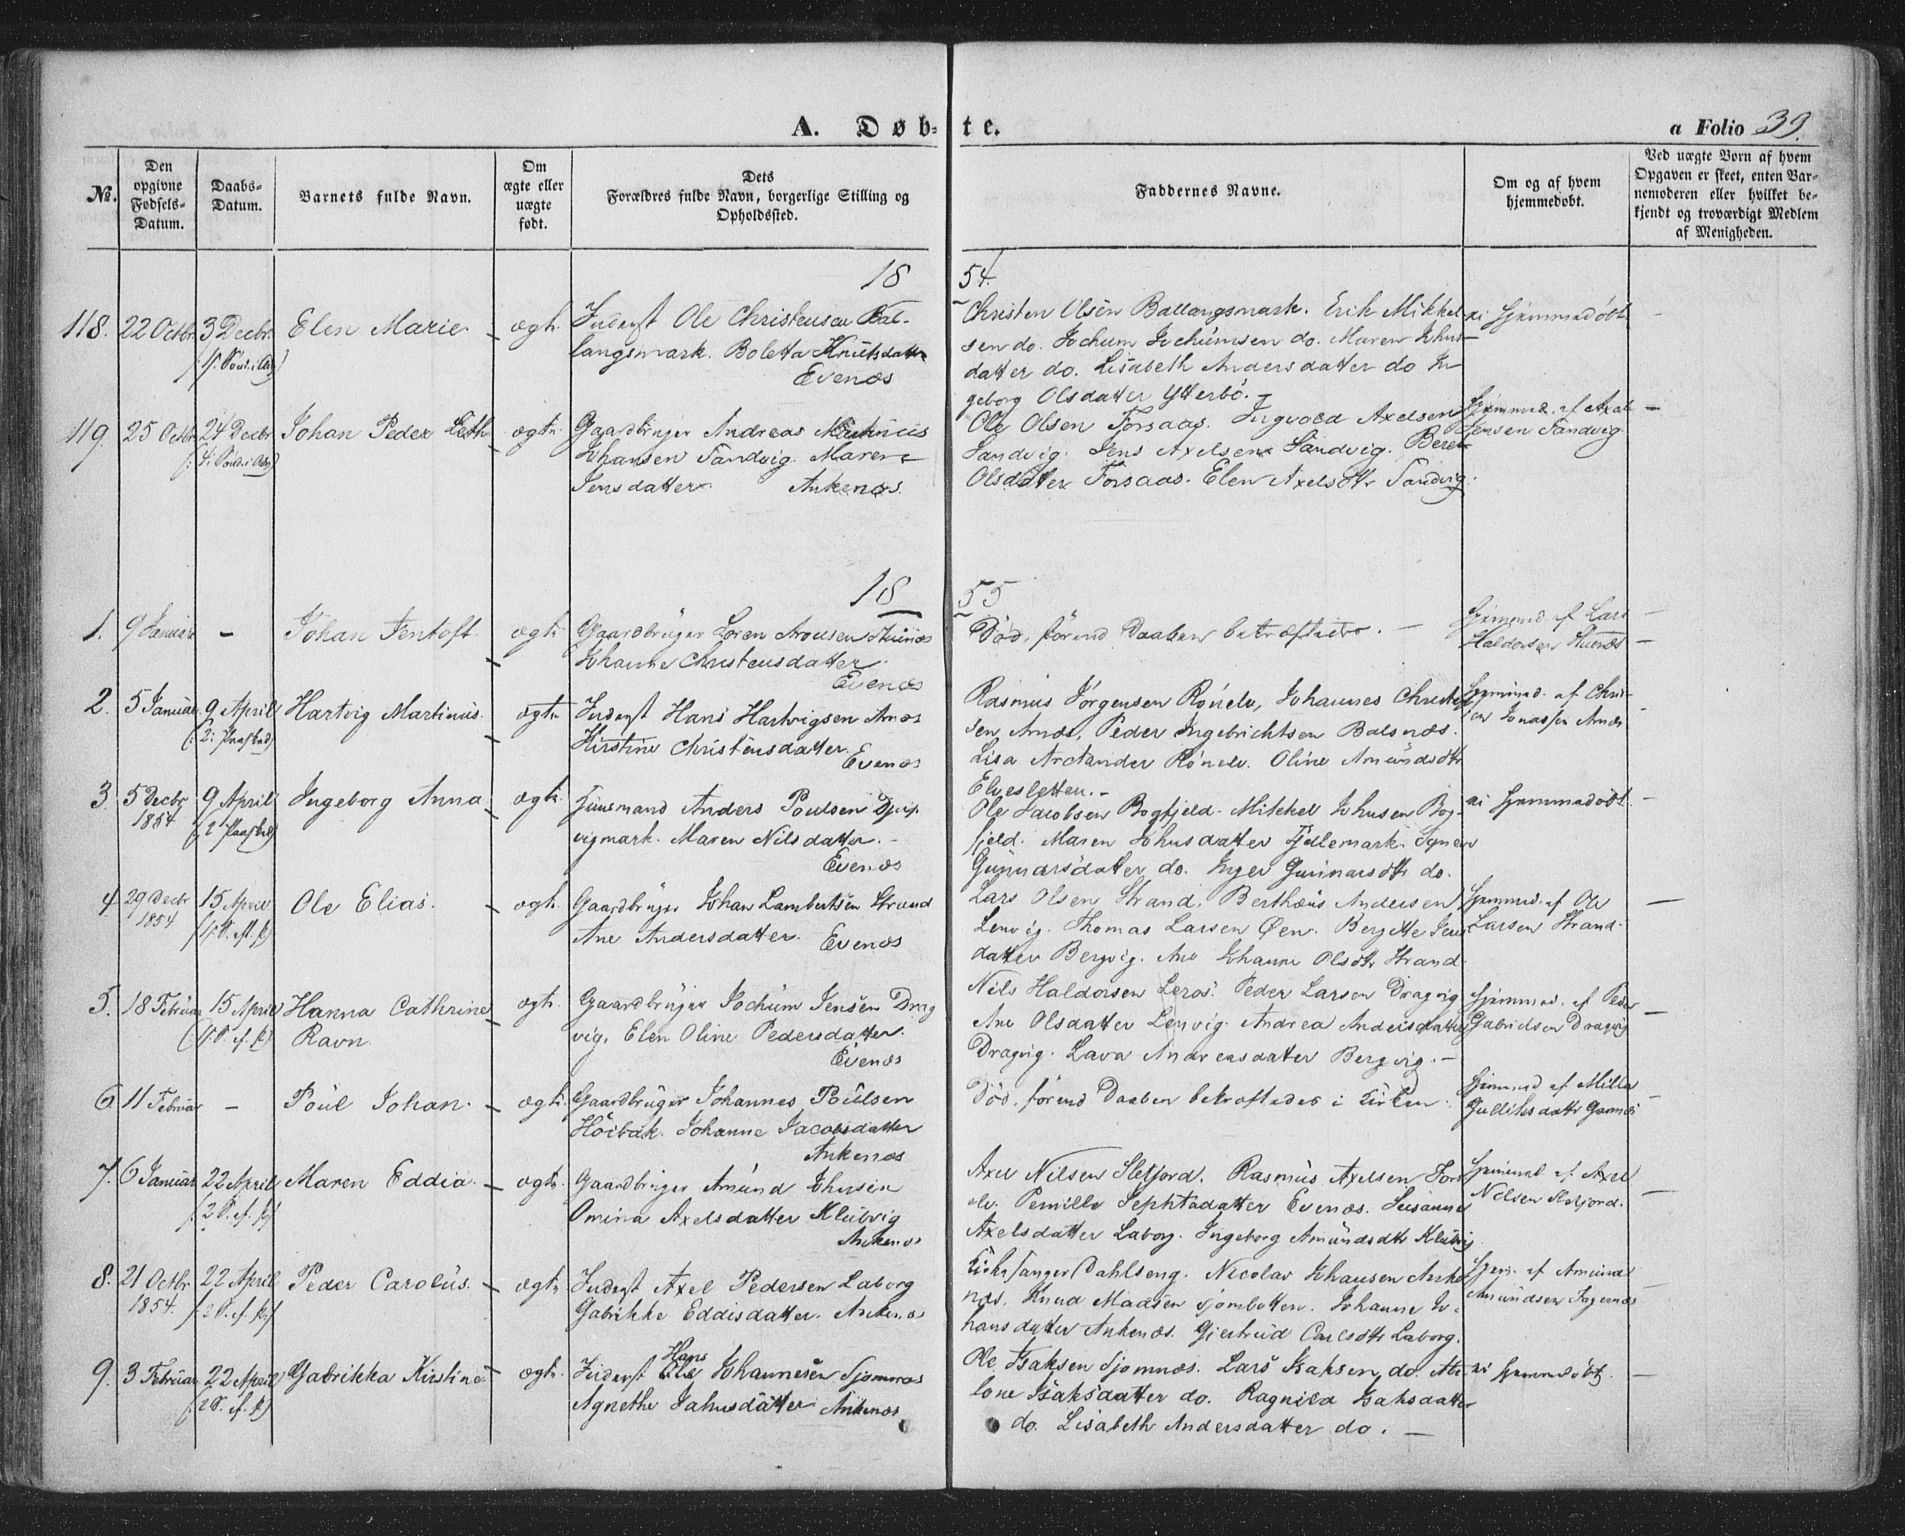 A. Døb-te.
a Folio 39.
No.
Den opgivne Fødsels-Datum.
Daabs-Datum.
Barnets fulde Navn.
Om ægte eller uægte født.
Dets Forældres fulde Navn, borgerlige Stilling og Opholdssted.
Faddernes Navne.
Om og af hvem hjemmedøbt.
Ved uægte Børn af hvem Opgaven er skeet, enten Barnemoderen eller hvilket bekjendt og troværdigt Medlem af Menigheden.
1854.
118. 22 Octbr 3 Decbr. Elen Marie. ægte. Inderst Ole Christensen Bal-
langsmark. Boletta Knutsdatter
Evenæs
Christen Olsen Ballangsmark. Erik Mikkel-
sen do. Jochum Jochumsen do. Maren Johns-
datter do. Lisabeth Andersdatter do In-
geborg Olsdatter Ytterbö.
ei hjemmedøbt. –
119. 25 Octbr 24 Decbr Johan Peder ægte. Gaardbruger Andreas
Johansen Sandvig. Maren
Jensdatter. Ankenæs.
Ole Olsen Forsaas. Ingvold Axelsen
Sandvig. Jens Axelsen Sandvig. Beret
Olsdatter Forsaas. Elen Axelsdtr Sandvig.
hjemmed. af Axel
Jensen Sandvig. –
1855
1. 9 Januar – Johan Fentoft ægte Gaardbruger Soren Aronsen
Johanne Christensdatter.
Evenæs
Död, förend Daaben betræftedes. –
hjemmed. af Lars
Haldorsen –
2. 5 Januar 9 April Hartvig Martinus. ægte Inderst Hans Hartvigsen Arnæs
(: 2. Paasked)
Kirstine Christensdatter.
Evenæs
Rasmus Jørgensen Rönelv, Johannes Christen-
sen Arnæs, Peder Ingebrichtsen Balsnæs.
Lisa Arctander Rönelv. Oline Amundsdtr
Elvesletten. –
hjemmed. af Chri-
sten Jonassen Arnæs
3. 5 Decbr 1854 9 April Ingeborg Anna ægte. Huusmand Anders Poulsen
vigmark. Maren Nilsdatter. –
Evenæs
(2 Paasked)
Ole Jacobsen Bogfjeld. Mikkel Johnsen Bog-
fjeld. Maren Johnsdatter Fjellemark.
Gunnarsdatter do. Inger Gunnarsdtr do.
ei hjemmedøbt –
4 29 Decbr 1854 15 April Ole Elias. ægte. Gaardbruger Johan Lambertsen Strand
Ane Andersdatter. Evenæs
Lars Olsen Strand, Berthæus Andersen
Lenvig. Thomas Larsen Øen. Bergitte Jens-
datter Bergvig. Ane Johanne Olsdtr Strand
hjemmed. af Ole
Larsen Strand. –
5. 18 Februar 15 April Hanna Cathrine
Ravn.
ægte. Gaardbruger Jochum Jensen Drag
vig, Elen Oline Pedersdatter.
Evenæs
Nils Haldorsen Leros. Peder Larsen Dragvig
Ane Olsdatter Lenvig. Andrea Andersdatter
Dragvig. Lava Andreasdatter Bergvig. –
hjemmed. af Peder
Gabrielsen Dragvig –
6. 11 Februar – Poul Johan. ægte. Gaardbruger Johannes Poulsen
Höibak. Johanne Jacobsdatter
Ankenæs
Död, förend Daaben betræftedes i Kirken.
hjemmed af Milla
7. 6 Januar 22 April Maren Eddia. ægte. Gaardbruger Amund Johnsen
Omina Axelsdatter Klubvig
Ankenæs
Axel Nilsen Sletjord. Rasmus Axelsen Fors-
elv. Pernille Sephtadatter Evenæs. Susanne
Axelsdatter Laborg. Ingeborg Amundsdtr Klubvig
hjemmed af Axel
Nilsen Sletjord. –
8. 21 Octbr 1854. 22 April Peder Carolus. ægte. Inderst Axel Pedersen Laborg
Gabrikke Eddisdatter. Ankenæs
Kirkesanger Dahlseng. Nicolav Johansen Anke-
næs. Knud Maasen Sjombotten. Johanne Jo-
hansdatter Ankenæs. Gjertrud Carlsdtr Laborg.
hjem. af Amund
Amundsen Fagernæs
9. 3 Februar 22 April Gabrikka Kirstine ægte. Inderst Hans Johannesen Sjomnæs
Agnethe Ankenæs
Ole Isaksen Sjomnæs. Lars Isaksen do.
lone Isaksdatter do. Ragnild Isaksdatter
do. Lisabeth Andersdatter do. –
ei hjemmedøbt. –